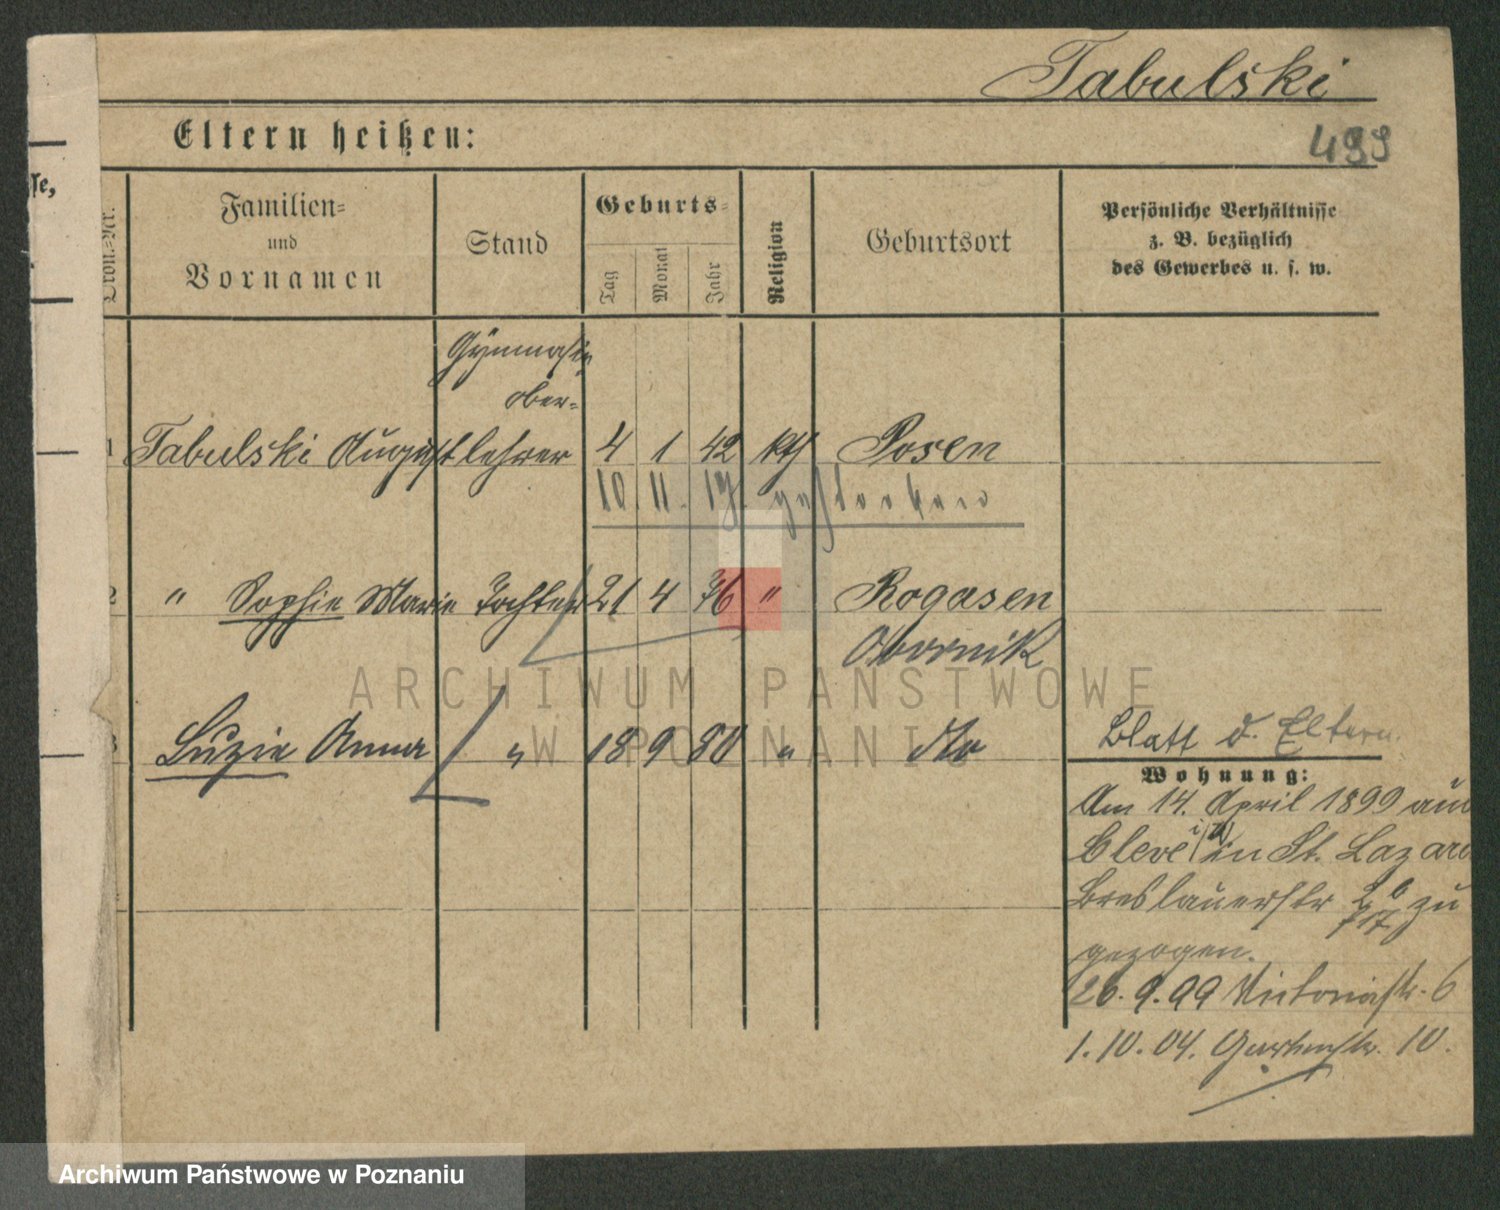 Tabulski
499
Eltern heißen:
ſſe,
Ordn.-Nr.
Familien-
und
Vornamen
Stand
Geburts-
Tag
Monat
Jahr
Religion
Geburtsort
Perſönliche Verhältniſſe
z. B. bezüglich
des Gewerbes u. ſ. w.
Gymnasial-
ober-
1 Tabulski August lehrer 4 1 42 kth Posen
10. 11. 19. gestorben
2 " Sophie Marie Tochter 21 4 76 " Rogasen
Obornik
3 Luzie Anna " 18 9 80 " dto
Blatt d. Eltern.
Wohnung:
Am 14. April 1899 aus
Cleve in St. Lazarus
Breslauerstr zu
gezogen.
26. 9. 99 Victoriastr. 6
1. 10. 04. Gartenstr. 10.
ARCHIWUM PAŃSTWOWE
W POZNANIU
Archiwum Państwowe w Poznaniu